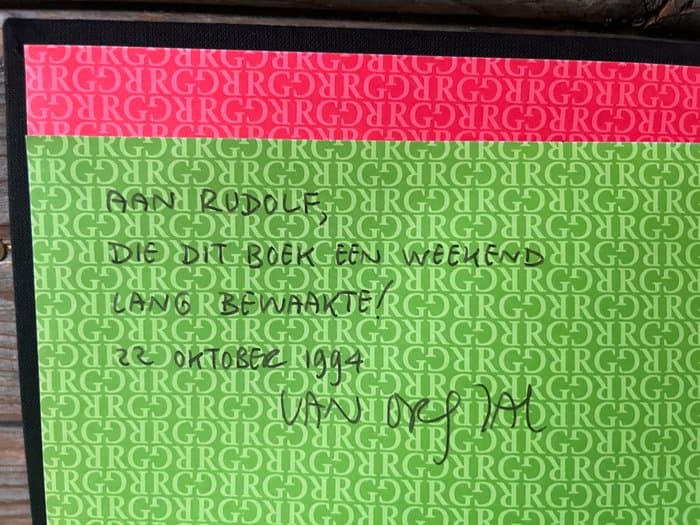 AAN RUDOLF,
DIE DIT BOEK EEN WEEKEND
LANG BEWAAKTE!
22 OKTOBER 1994
VAN